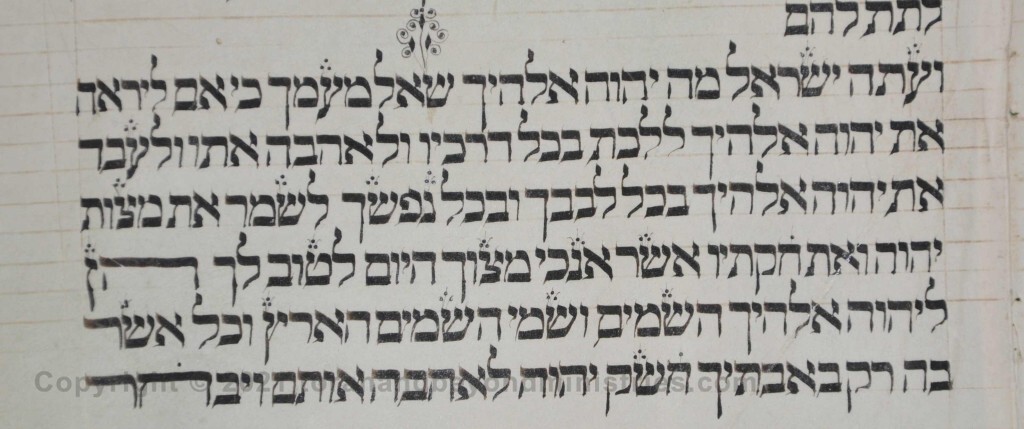 לתת להם
ועתה ישראל מה יהוה אלהיך שאל מעמך כי אם ליראה
את יהוה אלהיך ללכת בכל דרכיו ולאהבה אתו ולעבד
את יהוה אלהיך בכל לבבך ובכל נפשך לשמר את מצות
יהוה ואת חקתיו אשר אנכי מצוך היום לטוב לך הן
ליהוה אלהיך השמים ושמי השמים הארץ וכל אשר
בה רק באבתיך חשק יהוה לאהבה אותם ויבחר
Copyright ©